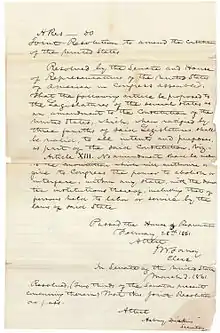 Joint Resolution to amend the
of the United States
Resolved by the Senate and House
of Representatives of the United States
of America in Congress assembled,
That the following article be proposed to
the Legislatures of the several States as
an amendment to the Constitution of the
United States, which, when ratified by
three fourths of said Legislatures, shall
be valid, to all intents and purposes,
as part of the said Constitution, viz:
Article XIII. No amendment shall be made
to the Constitution which will authorize or
give to Congress the power to abolish or
interfere, within any State, with the
domestic institutions thereof, including that of
persons held to labor or service by the
laws of said State.
Passed the House of Representatives
February 28th 1861.
Attest
Clerk
In Senate of the United States
March 2, 1861.
Resolved, (two thirds of the Senate present
concurring therein) That the joint Resolution
Attest